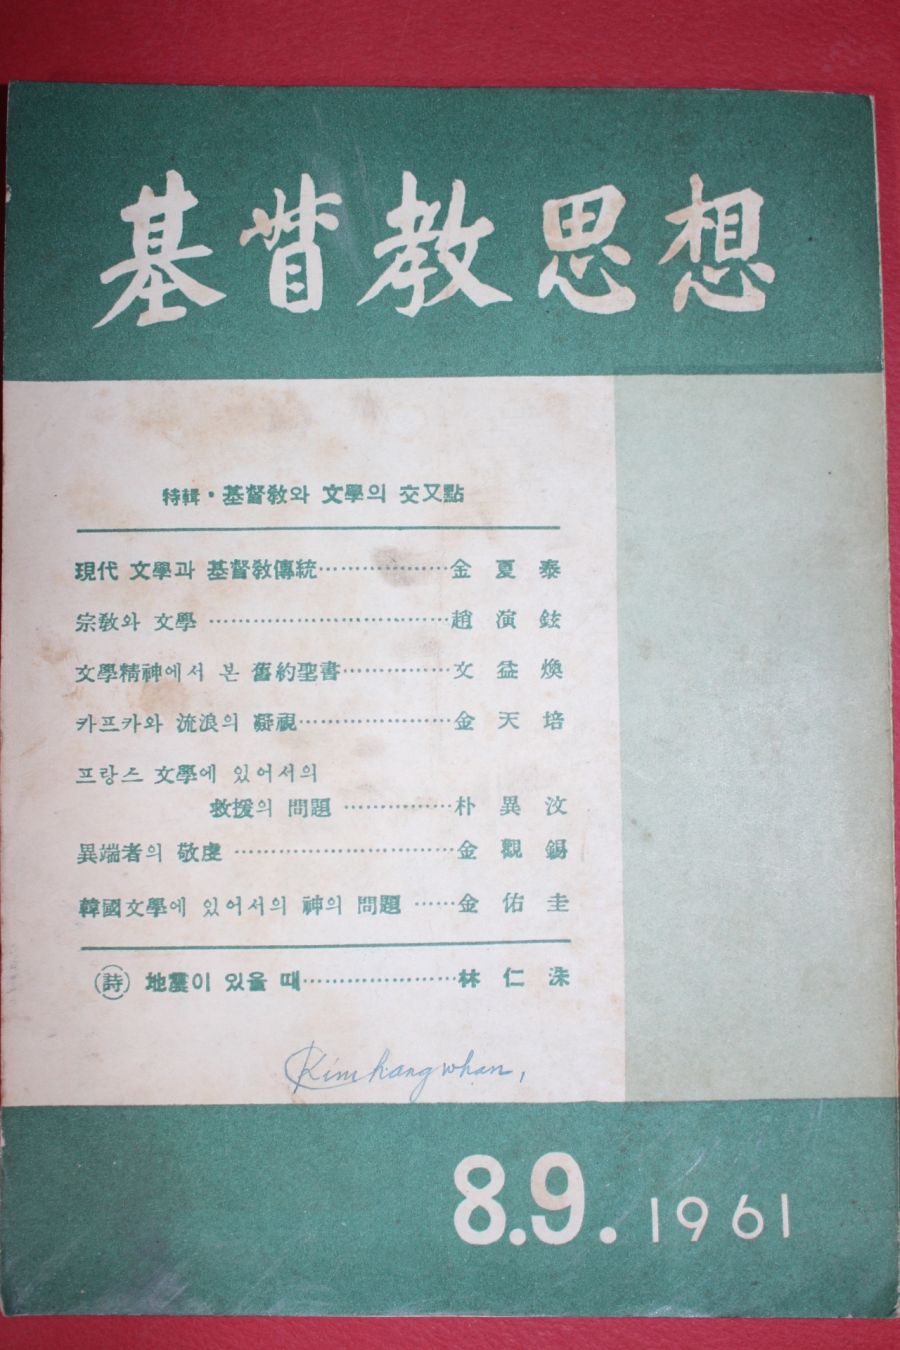 基督教思想
特輯·基督敎와 文學의 交叉點
現代 文學과 基督敎傳統………………金 夏 泰
宗敎와 文學……………………………趙 演 鉉
文學精神에서 본 舊約聖書……………文 益 煥
카프카와 流浪의 凝視…………………金 天 培
프랑스 文學에 있어서의
救援의 問題……………朴 異 汶
異端者의 敬虔…………………………金 觀 錫
韓國文學에 있어서의 神의 問題……金 佑 圭
(詩) 地震이 있을 때…………………林 仁 洙
Kim hang whan,
8.9. 1961